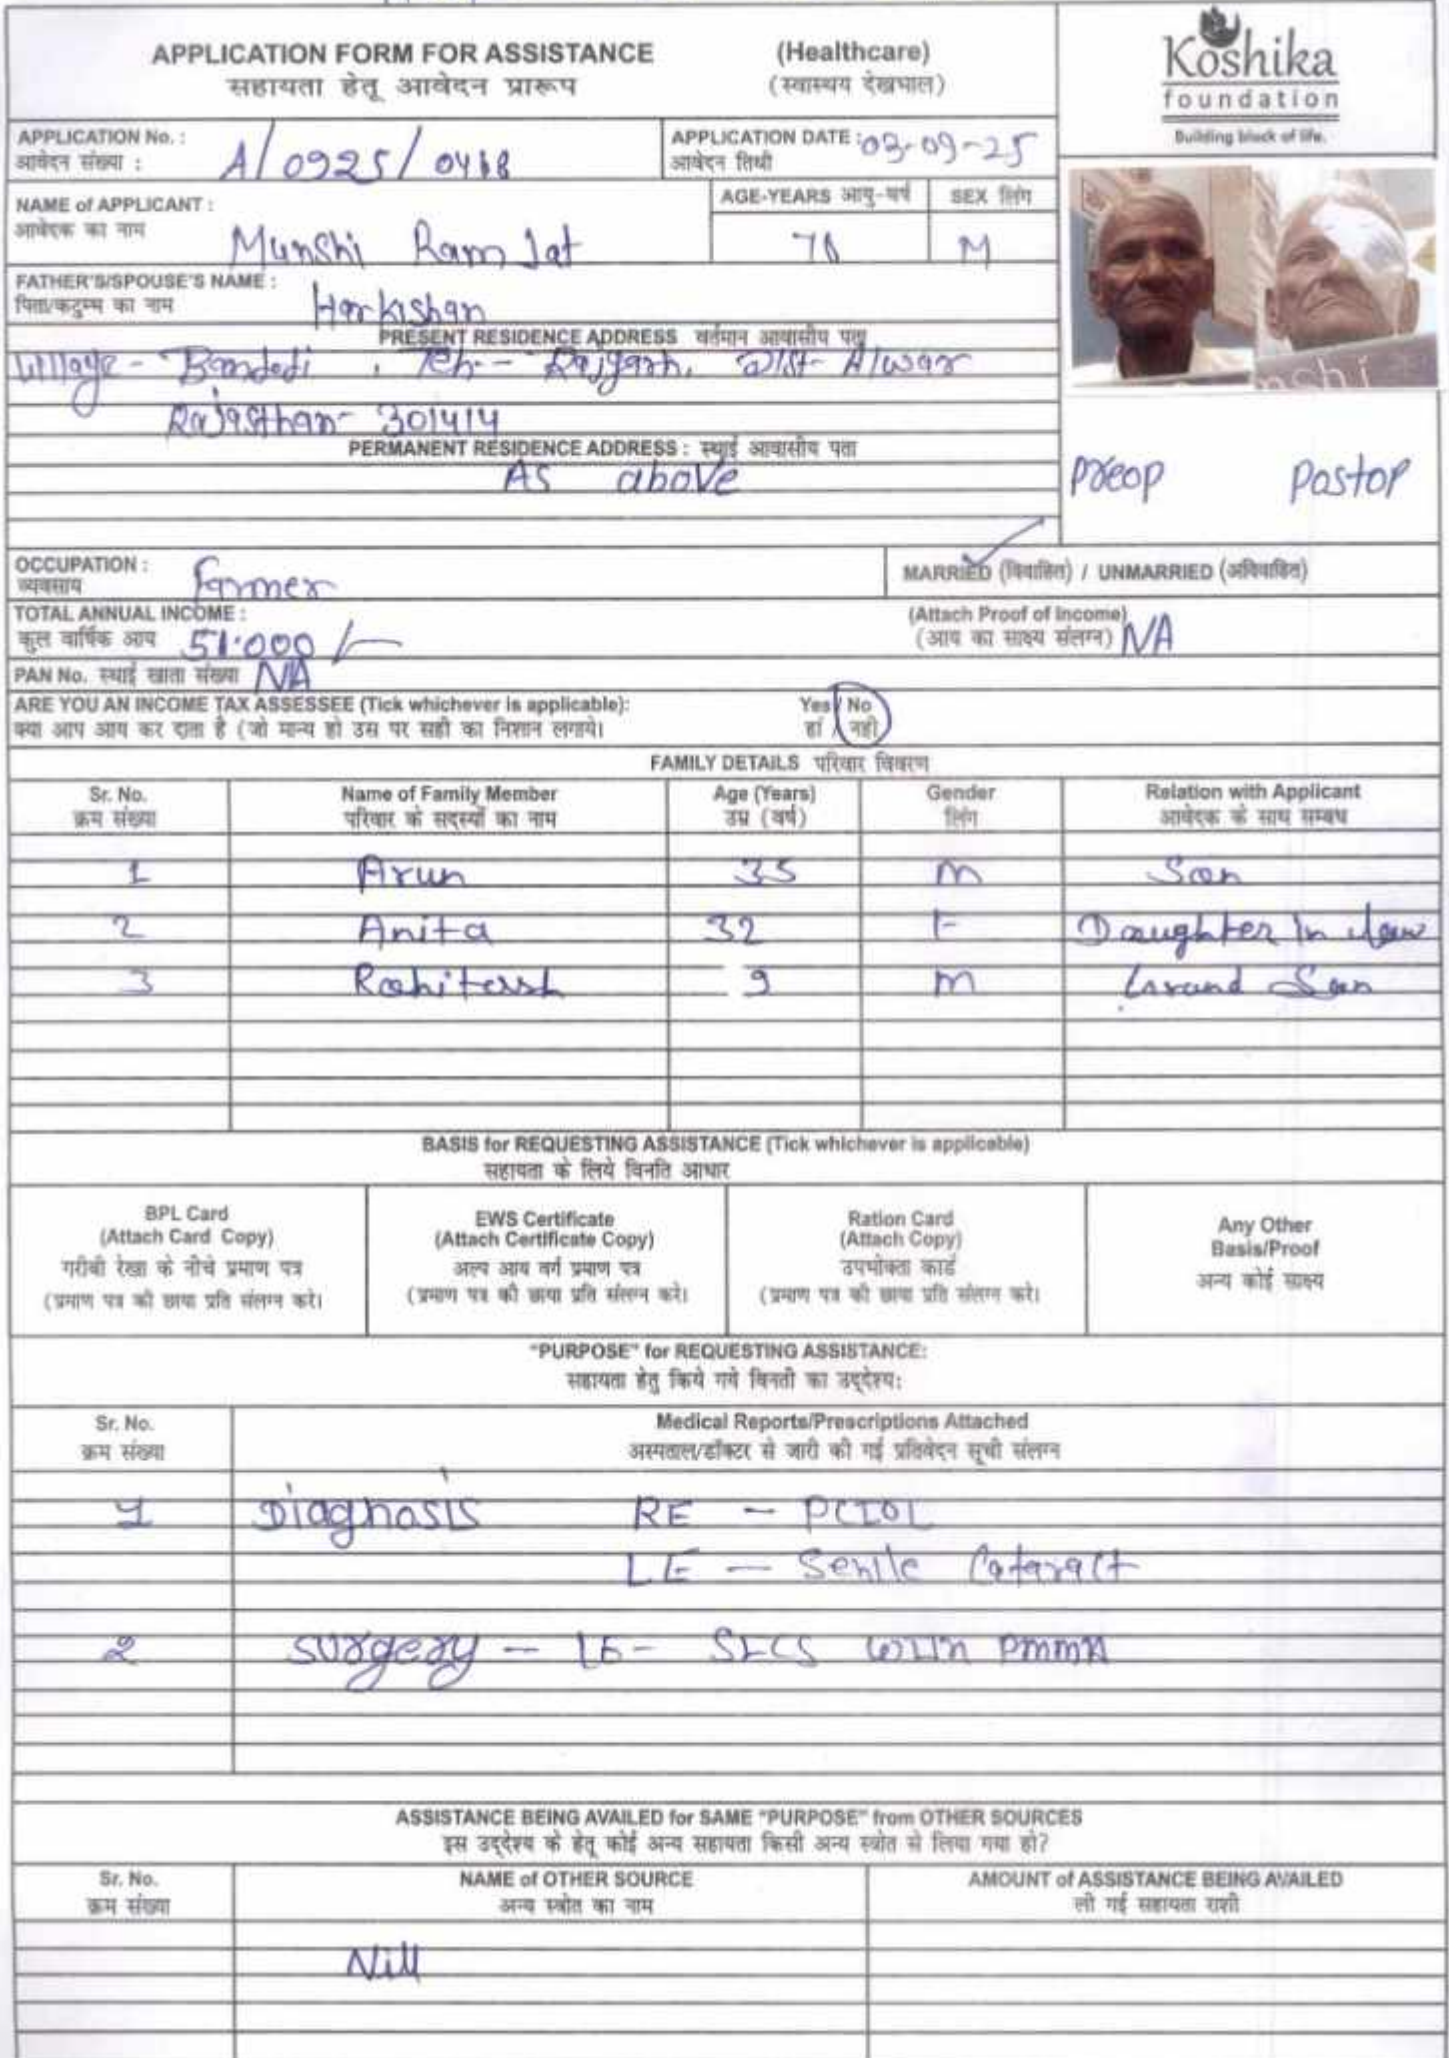 APPLICATION FORM FOR ASSISTANCE (Healthcare)
सहायता हेतू आवेदन प्रारूप (स्वास्थय देखभाल)
Koshika
foundation
Building block of life.
APPLICATION No. : A/0925/0468 APPLICATION DATE : 03-09-25
आवेदन संख्या : आवेदन तिथी
NAME of APPLICANT : AGE-YEARS आयु-वर्ष SEX लिंग
आवेदक का नाम Munshi Ram Jat M
FATHER'S/SPOUSE'S NAME :
पिता/कटुम्ब का नाम Harkishan
PRESENT RESIDENCE ADDRESS वर्तमान आवासीय पता
Village - , Teh - Rajgarh, Dist- Alwar
Rajasthan- 301414
PERMANENT RESIDENCE ADDRESS : स्थाई आवासीय पता
As above
Preop Postop
nshi
OCCUPATION : Farmer MARRIED (विवाहित) / UNMARRIED (अविवाहित)
व्यवसाय
TOTAL ANNUAL INCOME : (Attach Proof of Income)
कुल वार्षिक आय 51.000/- (आय का साक्ष्य संलग्न) NA
PAN No. स्थाई खाता संख्या NA
ARE YOU AN INCOME TAX ASSESSEE (Tick whichever is applicable): Yes / No
क्या आप आय कर दाता है (जो मान्य हो उस पर सही का निशान लगाये। हां / नही
FAMILY DETAILS परिवार विवरण
Sr. No. Name of Family Member Age (Years) Gender Relation with Applicant
क्रम संख्या परिवार के सदस्यों का नाम उम्र (वर्ष) लिंग आवेदक के साथ सम्बध
1 Arun 35 M Son
2 Anita 32 F Daughter In law
3 Rohitersh 9 M Grand Son
BASIS for REQUESTING ASSISTANCE (Tick whichever is applicable)
सहायता के लिये विनति आधार
BPL Card
(Attach Card Copy)
गरीबी रेखा के नीचे प्रमाण पत्र
(प्रमाण पत्र की छाया प्रति संलग्न करे।
EWS Certificate
(Attach Certificate Copy)
अल्प आय वर्ग प्रमाण पत्र
(प्रमाण पत्र की छाया प्रति संलग्न करे।
Ration Card
(Attach Copy)
उपभोक्ता कार्ड
(प्रमाण पत्र की छाया प्रति संलग्न करे।
Any Other
Basis/Proof
अन्य कोई साक्ष्य
"PURPOSE" for REQUESTING ASSISTANCE:
सहायता हेतु किये गये विनती का उद्देश्य:
Sr. No. Medical Reports/Prescriptions Attached
क्रम संख्या अस्पताल/डॉक्टर से जारी की गई प्रतिवेदन सूची संलग्न
1 Diagnosis RE - PCIOL
LE - Senile Cataract
2 Surgery - LE - SICS with PMMA
ASSISTANCE BEING AVAILED for SAME "PURPOSE" from OTHER SOURCES
इस उद्देश्य के हेतू कोई अन्य सहायता किसी अन्य स्त्रोत से लिया गया हो?
Sr. No. NAME of OTHER SOURCE AMOUNT of ASSISTANCE BEING AVAILED
क्रम संख्या अन्य स्त्रोत का नाम ली गई सहायता राशी
Nill